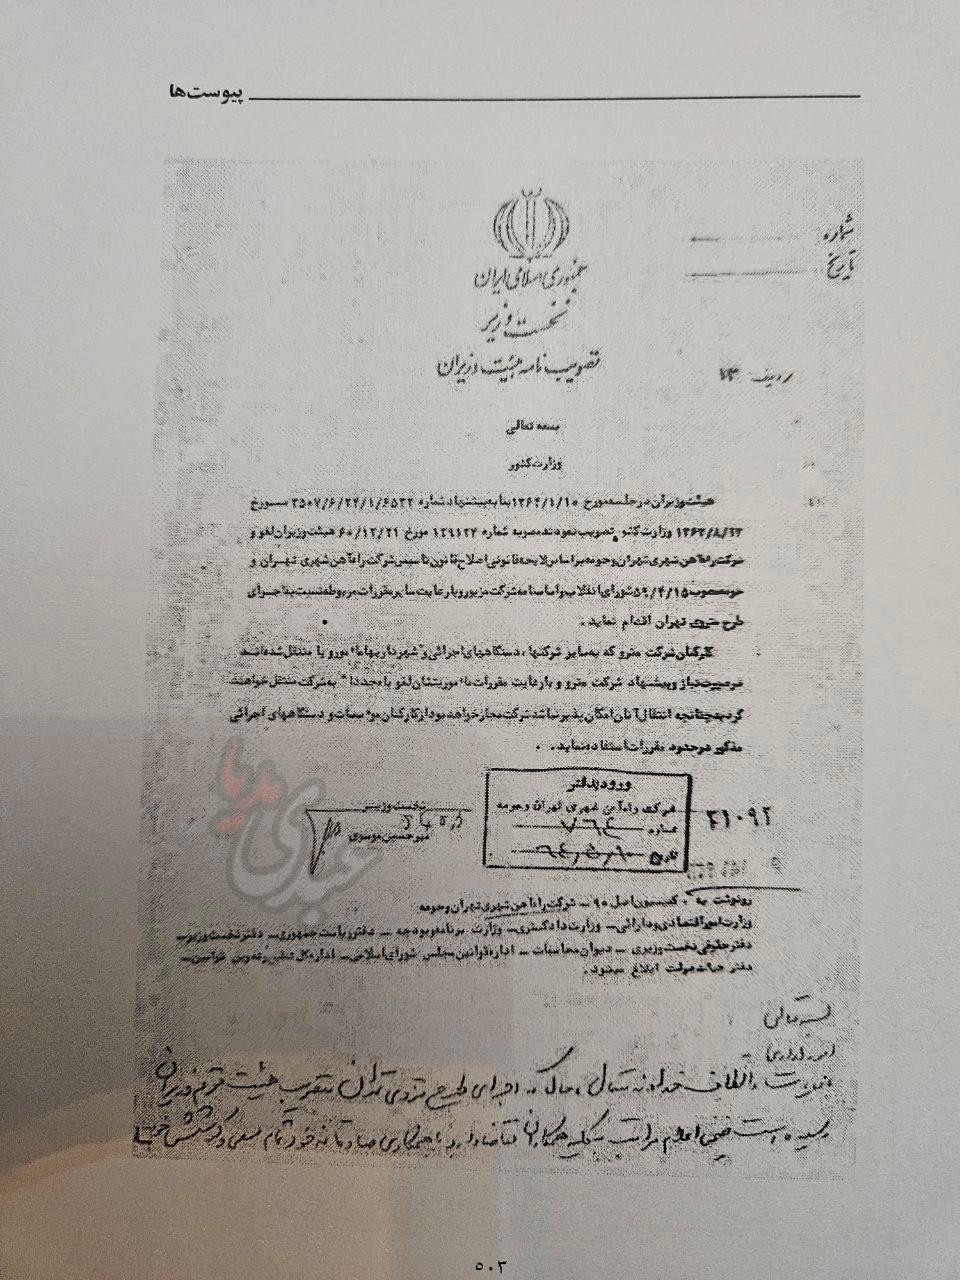 پیوست‌ها
شماره
تاریخ
جمهوری اسلامی ایران
نخست وزیر
تصویب نامه هیئت وزیران
ردیف ۱۳
بسمه تعالی
وزارت کشور
هیئت وزیران در جلسه مورخ ۱۳۶۴/۱/۱۰ بنا به پیشنهاد شماره مورخ
وزارت کشور تصویب نمودند مصوبه شماره ۱۲۹۱۲۴ مورخ ۶۰/۱۲/۲۱ هیئت وزیران لغو و
شرکت راه‌آهن شهری تهران و حومه براساس لایحه قانونی اصلاح قانون تاسیس شرکت راه‌آهن شهری تهران و
حومه مصوب ۵۹/۴/۱۵ شورای انقلاب و اساسنامه شرکت مزبور و با رعایت سایر مقررات مربوطه نسبت به اجرای
طرح متروی تهران اقدام نماید .
کارکنان شرکت مترو که به سایر شرکتها ، دستگاههای اجرائی و شهرداریها مامور و یا منتقل شده‌اند
درصورت نیاز و پیشنهاد شرکت مترو و با رعایت مقررات ماموریتشان لغو یا مجددا" به شرکت منتقل خواهند
گردید چنانچه انتقال آنان امکان پذیر نباشد شرکت مجاز خواهد بود از کارکنان موسسات و دستگاههای اجرائی
مذکور در حدود مقررات استفاده نماید .
ورود به دفتر
شرکت راه‌آهن شهری تهران و حومه
شماره ۷۶۴
تاریخ ۶۴/۵/۱۰
۴۱۰۹۲
نخست وزیر
میرحسین موسوی
عبدی مدیا
رونوشت به : کمیسیون اصل ۹۰ – شرکت راه‌آهن شهری تهران و حومه
وزارت امور اقتصادی و دارائی – وزارت دادگستری – وزارت برنامه و بودجه – دفتر ریاست جمهوری – دفتر نخست وزیر –
دفتر حقوقی نخست وزیری – دیوان محاسبات – اداره قوانین مجلس شورای اسلامی – اداره کل تنقیح و تدوین قوانین –
دفتر هیات دولت ابلاغ میشود .
بسمه تعالی
امور اداری
الطاف خداوند متعال حال که اجرای طرح متروی تهران بتصویب هیئت محترم وزیران
رسیده است ضمن اعلام مراتب به کلیه همکاران تقاضا دارد با همکاری صادقانه خود تمام سعی و کوشش خود را
۵۰۳